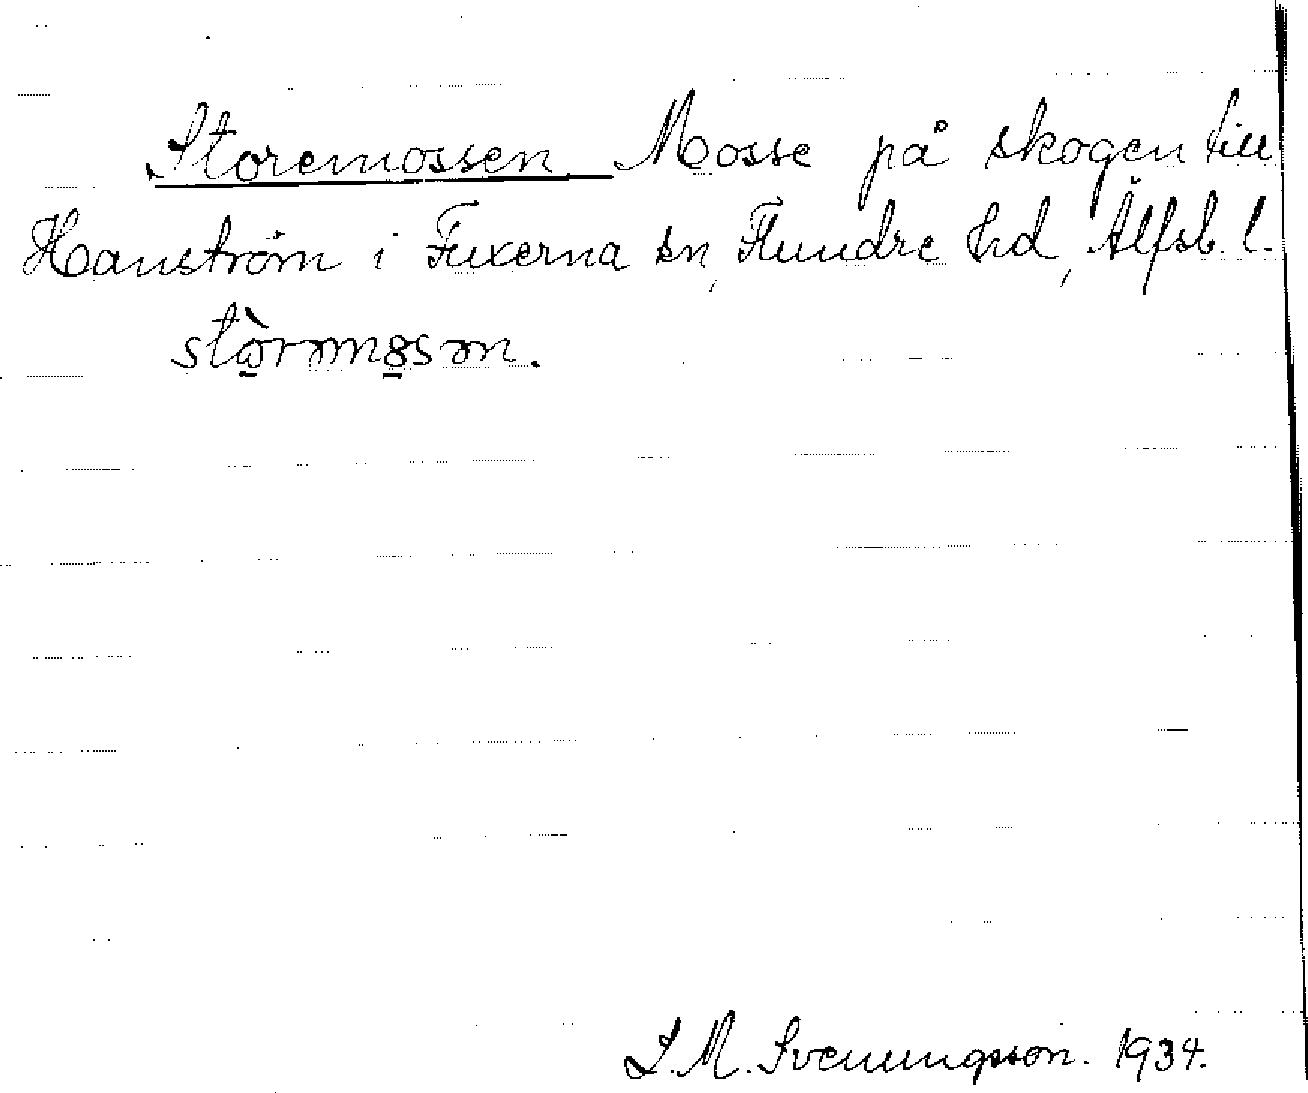 Storemossen Mosse på skogen till
Hanström i Fuxerna sn, Flundre hd, Älfsb. l.
stò̱rəmo̱sən.
S. M. Svenungsson. 1934.